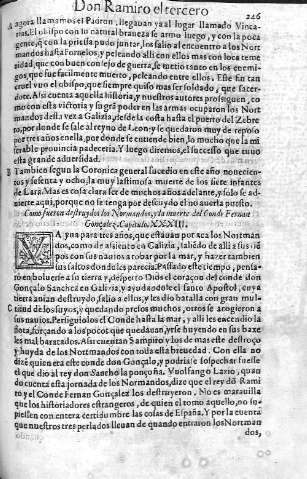 Don Ramiro el tercero
226
A agora llamamos el Padron, llegauan ya al lugar llamado Vinca-
rias. El obispo con su natural braueza se armo luego, y con la poca
gente, q̃ con la priessa pudo juntar, los salio al encuentro a los Nort
mandos hasta Fornelos, y peleando alli con ellos mas con loca teme
ridad, que con buen consejo de guerra, se metio tanto en los enemi-
gos, que fue facilmente muerto, peleando entre ellos. Este fin tan
cruel vuo el obispo, que siempre quiso mas ser soldado, que sacer-
dote. Assi cuenta aquella historia, y nuestros autores prosiguen, co
mo con esta victoria y su grã poder en las armas ocuparon los Nort
mandos desta vez a Galizia, desde la costa hasta el puerto del Zebre
ro, por donde se sale al reyno de Leon: y se quedaron muy de reposo
por tres años en ella, por donde se entiende bien, lo mucho que la mi
serable prouincia padeceria. Y luego diremos, el sucesso que tuuo
esta grande aduersidad.
B Tambien segun la Coronica general sucedio en este año nouecien-
tos y sesenta y ocho, la muy lastimosa muerte de los siete infantes
de Lara. Mas es cosa clara ser de muchos años adelante, y solo se ad-
uierte aqui, porque no se tenga por descuydo el no auerla puesto.
Como fueron destruydos los Normandos, y la muerte del Conde Fernan
Gonçalez. Capitulo. XXXIII.
YA yua para tres años, que estauan por aca los Nortman
dos, como de assiento en Galizia, saliẽdo de alli a sus tiẽ
pos con sus nauios a robar por la mar, y hazer tambien
sus saltos donde les parecia. Passado este tiempo, pensa-
ro en boluerse a su tierra, y despertò Dios el coraçon del conde don
Gonçalo Sanchez en Galizia, y ayudandole el santo Apostol, cuya
tierra auian destruydo, salio a ellos, y les dio batalla con gran mul-
C titud de los suyos, y quedando presos muchos, otros se acogieron a
sus nauios. Persiguiolos el Conde hasta la mar, y alli les encendio la
flota, forçando a los pocos que quedauan, yrse huyendo en sus baxe
les mal baratados. Assi cuentan Sampiro y los de mas este destroço
y huyda de los Nortmandos con toda esta breuedad. Con ella no
dizẽ quien era este conde don Gonçalo, y podriase sospechar fuesse
el que dio al rey don Sancho la ponçoña. Vuolfango Lazio, quan
do cuenta esta jornada de los Normandos, dize que el rey dõ Rami
ro y el Conde Fernan Gonçalez los destruyeron. No es marauilla
que los historiadores estrangeros, de quien el tomo aquello, no su-
piessen con entera certidumbre las cosas de España. Y por la cuenta
que nuestros tres perlados lleuan de quando entraron los Nortman
dos,